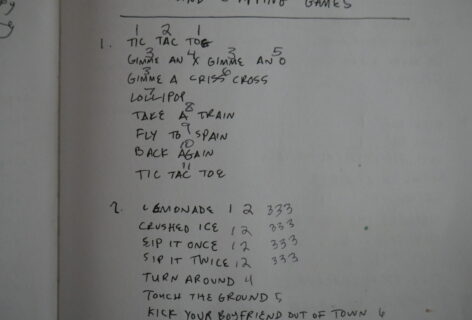 GAMES
1 2 1
1. TIC TAC TOE
3 4 3 5
GIMME AN X GIMME AN O
3 6
GIMME A CRISS CROSS
7
LOLLIPOP
8
TAKE A TRAIN
9
FLY TO SPAIN
10
BACK AGAIN
11
TIC TAC TOE
2. LEMONADE 1 2 333
CRUSHED ICE 12 333
SIP IT ONCE 12 333
SIP IT TWICE 12 333
TURN AROUND 4
TOUCH THE GROUND 5
KICK YOUR BOYFRIEND OUT OF TOWN 6